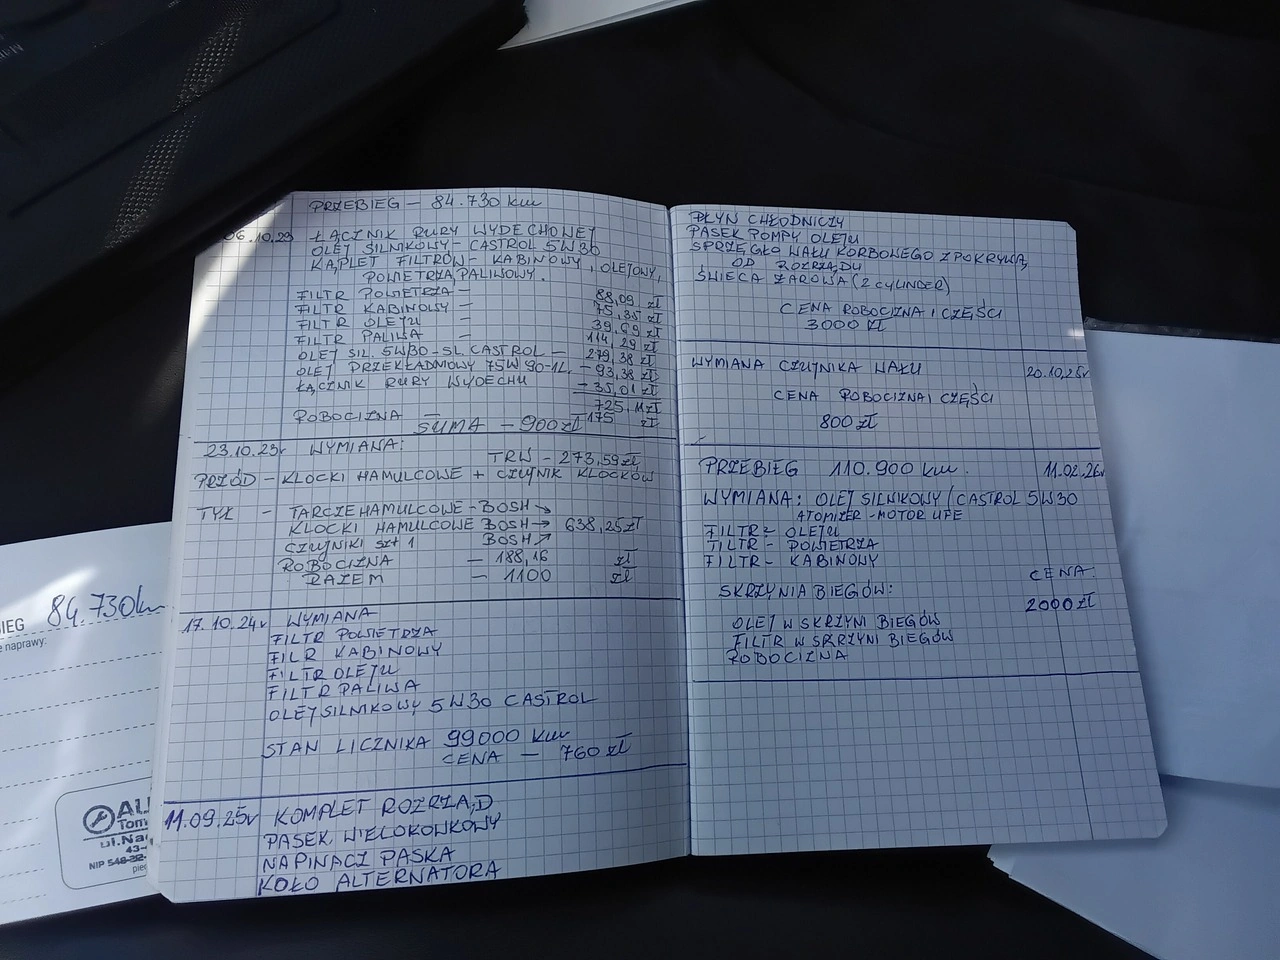 PRZEBIEG - 84.730 km
06.10.23 ŁĄCZNIK RURY WYDECHOWEJ
OLEJ SILNIKOWY - CASTROL 5W30
KĄPLET FILTRÓW - KABINOWY, OLEJOWY,
POWIETRZA, PALIWOWY.
FILTR POWIETRZA - 88,09 zł
FILTR KABINOWY - 75,35 zł
FILTR OLEJU - 39,69 zł
FILTR PALIWA - 114,29 zł
OLEJ SIL. 5W30-5L CASTROL - 279,38 zł
OLEJ PRZEKŁADNIOWY 75W90-1L. - 93,38 zł
ŁĄCZNIK RURY WYDECHU - 35,01 zł
725,11 zł
ROBOCIZNA - 175 zł
SUMA - 900 zł
23.10.23r WYMIANA:
TRW - 273,59 zł
PRZÓD - KLOCKI HAMULCOWE + CZUJNIK KLOCKÓW
TYŁ - TARCZE HAMULCOWE - BOSH
KLOCKI HAMULCOWE BOSH → 638,25 zł
CZUJNIKI szt 1 BOSH
ROBOCIZNA - 188,16 zł
RAZEM - 1100 zł
17.10.24r WYMIANA
FILTR POWIETRZA
FILR KABINOWY
FILTR OLEJU
FILTR PALIWA
OLEJ SILNIKOWY 5W30 CASTROL
STAN LICZNIKA 99000 km
CENA - 760 zł
11.09.25r KOMPLET ROZRZĄD
PASEK WIELOKOWKOWY
NAPINACZ PASKA
KOŁO ALTERNATORA
PŁYN CHŁODNICZY
PASEK POMPY OLEJU
SPRZĘGŁO WAŁU KORBOWEGO Z POKRYWĄ
OD ROZRZĄDU
ŚWIECA ŻAROWA (2 CYLINDER)
CENA ROBOCIZNA I CZĘŚCI
3000 zł
WYMIANA CZUJNIKA WAŁU 20.10.25r
CENA ROBOCIZNA I CZĘŚCI
800 zł
PRZEBIEG 110.900 km. 11.02.26r
WYMIANA: OLEJ SILNIKOWY / CASTROL 5W30
ATOMIZER - MOTOR LIFE
FILTR - OLEJU
FILTR - POWIETRZA
FILTR - KABINOWY
CENA
SKRZYNIA BIEGÓW:
2000 zł
OLEJ W SKRZYNI BIEGÓW
FILTR W SKRZYNI BIEGÓW
ROBOCIZNA
IEG 84.730km
e naprawy:
AL
Tom
ul.Na
43-
NIP 548-
piec